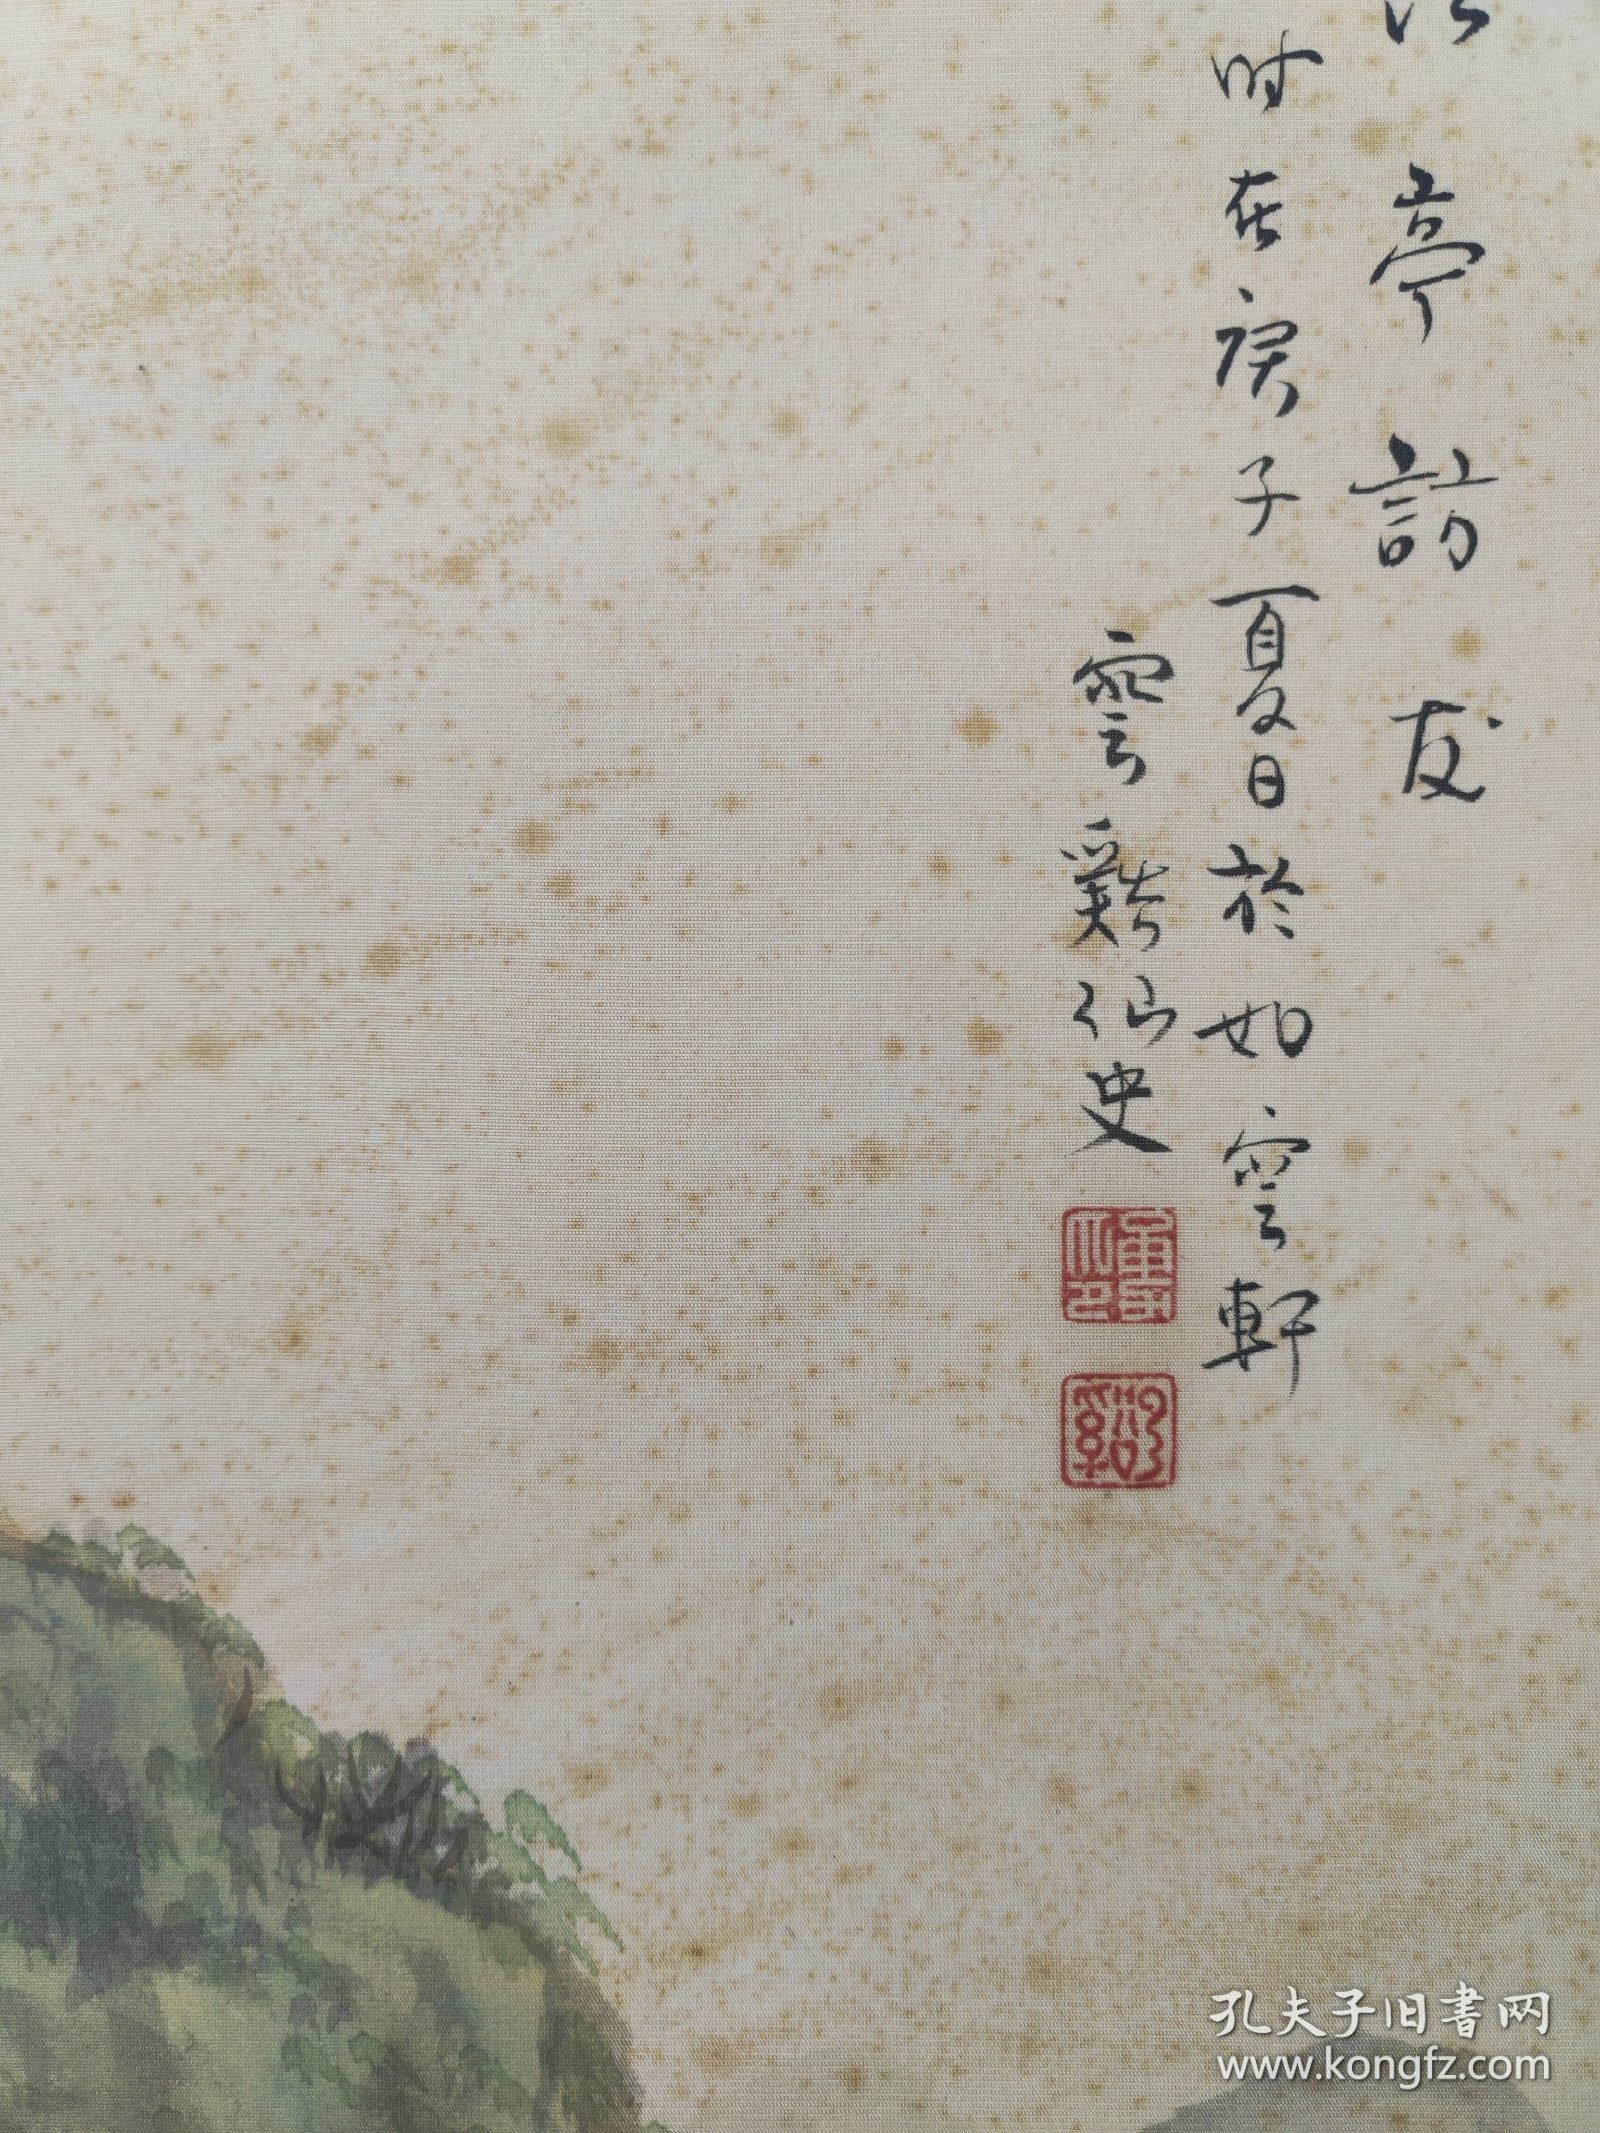 亭訪友
时在庚子夏日於如雲軒
雲谿仙史
孔夫子旧书网
www.kongfz.com